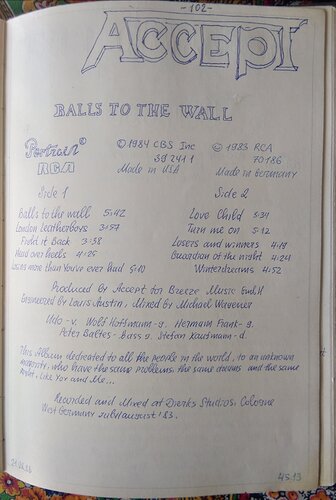 -102-
ACCEPT
BALLS TO THE WALL
Portrait ©
RCA
© 1984 CBS Inc
39 241 1
Made in USA
© 1983 RCA
70186
Made in Germany
Side 1
Balls to the wall 5:42
London Leatherboys 3:57
Fight it Back 3:58
Head over heels 4:25
Losing more than You've ever had 5:10
Side 2
Love Child 3:34
Turn me on 5:12
Losers and winners 4:19
Guardian of the night 4:24
Winterdreams 4:52
Produced by Accept for Breeze Music GmbH
Engineered by Louis Austin, Mixed by Michael Wagener
Udo-v. Wolf Hoffmann-g. Hermann Frank-g.
Peter Baltes-bass g. Stefan Kaufmann-d.
This Album dedicated to all the people in the world, to an unknown
majority, who have the same problems, the same downs and the same
, like You and Me...
Recorded and Mixed at Dierks Studios, Cologne
West Germany July/August '83.
45:13